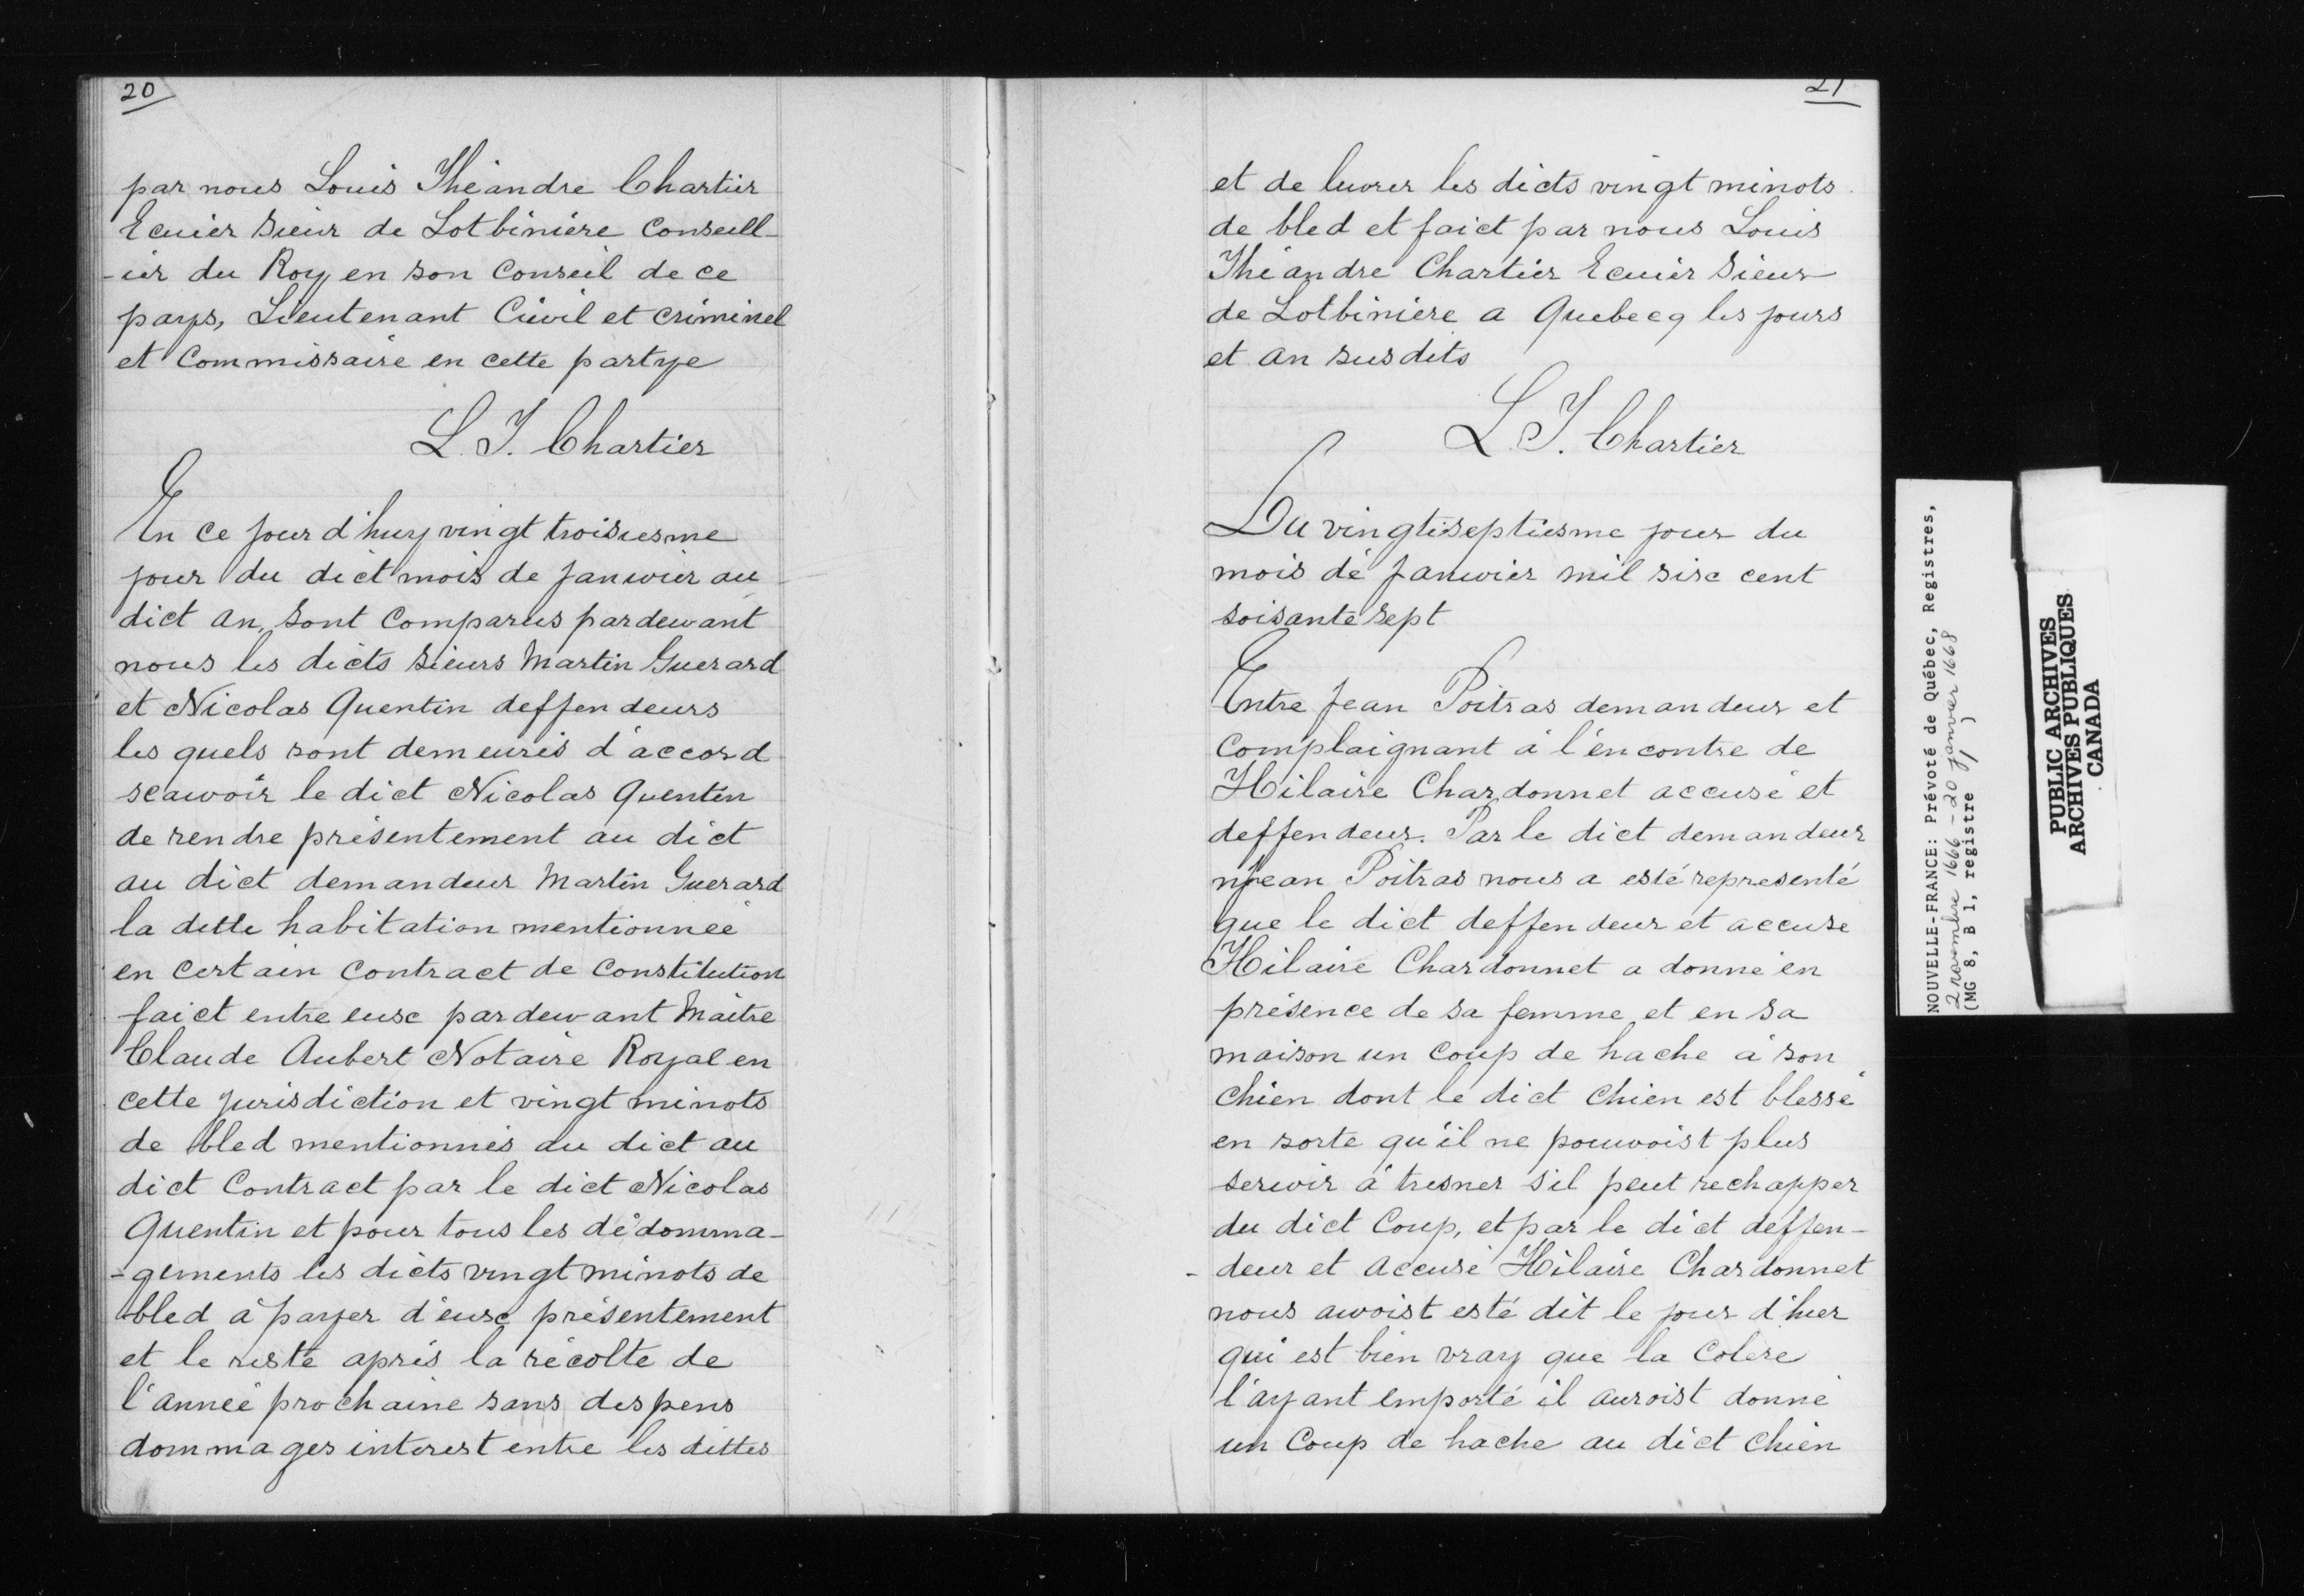 20
par nous Louis Théandre Chartier
Ecuier Sieur de Lotbiniére Conseill-
-ier du Roy en son Conseil de ce
pays, Lieutenant Ciuvil et criminel
et Commissaire en cette partye
L. T. Chartier
En ce jour d'huy vingt troisiesme
jour du dict mois de januvier au
dict an, sont Comparus pardeuvant
nous les dicts sieurs Martin Guerard
et Nicolas Quentin deffendeurs
les quels sont demeurés d'accord
scauvoir le dict Nicolas Quentin
de rendre présentement au dict
au dict demandeur Martin Guerard
la ditte habitation mentionneé
en certain contract de Constitution
faict entre eusc pardeuvant Maitre
Claude Aubert Notaire Royal en
cette jurisdiction et vingt minots
de bled mentionnés du dict au
dict Contract par le dict Nicolas
Quentin et pour tous les dédomma-
-gements les dicts vingt minots de
bled à payer d'eusc présentement
et le reste aprés la récolte de
l'anneé prochaine sans despens
dommages interest entre les dittes
21
et de liuvrer les dicts vingt minots
de bled et faict par nous Louis
Théandre Chartier Ecuier Sieur
de Lotbiniére a Quebecq les jours
et an susdits
L. T. Chartier
Du vingtiseptiesme jour du
mois de januvier mil sisc cent
soisante sept
Entre jean Poitras demandeur et
Complaignant à l'éncontre de
Hilaire Chardonnet accusé et
deffendeur. Par le dict demandeur
jean Poitras nous a esté representé
que le dict deffendeur et accuse
Hilaire Chardonnet a donné en
présence de sa femme et en sa
maison un coup de hache à son
chien dont le dict chien est blessé
en sorte qu'il ne pouvoist plus
seruvir à tresner s'il peut rechapper
du dict Coup, et par le dict deffen-
- deur et accusé Hilaire Chardonnet
nous auvoist esté dit le jour d'hier
qui est bien vray que la Colere
l'ayant emporté il auroist donné
un Coup de hache au dict chien
NOUVELLE-FRANCE: Prévoté de Québec, Registres,
2 novembre 1666 - 20 janvier 1668
(MG 8, B 1, registre 1 )
PUBLIC ARCHIVES
ARCHIVES PUBLIQUES
CANADA